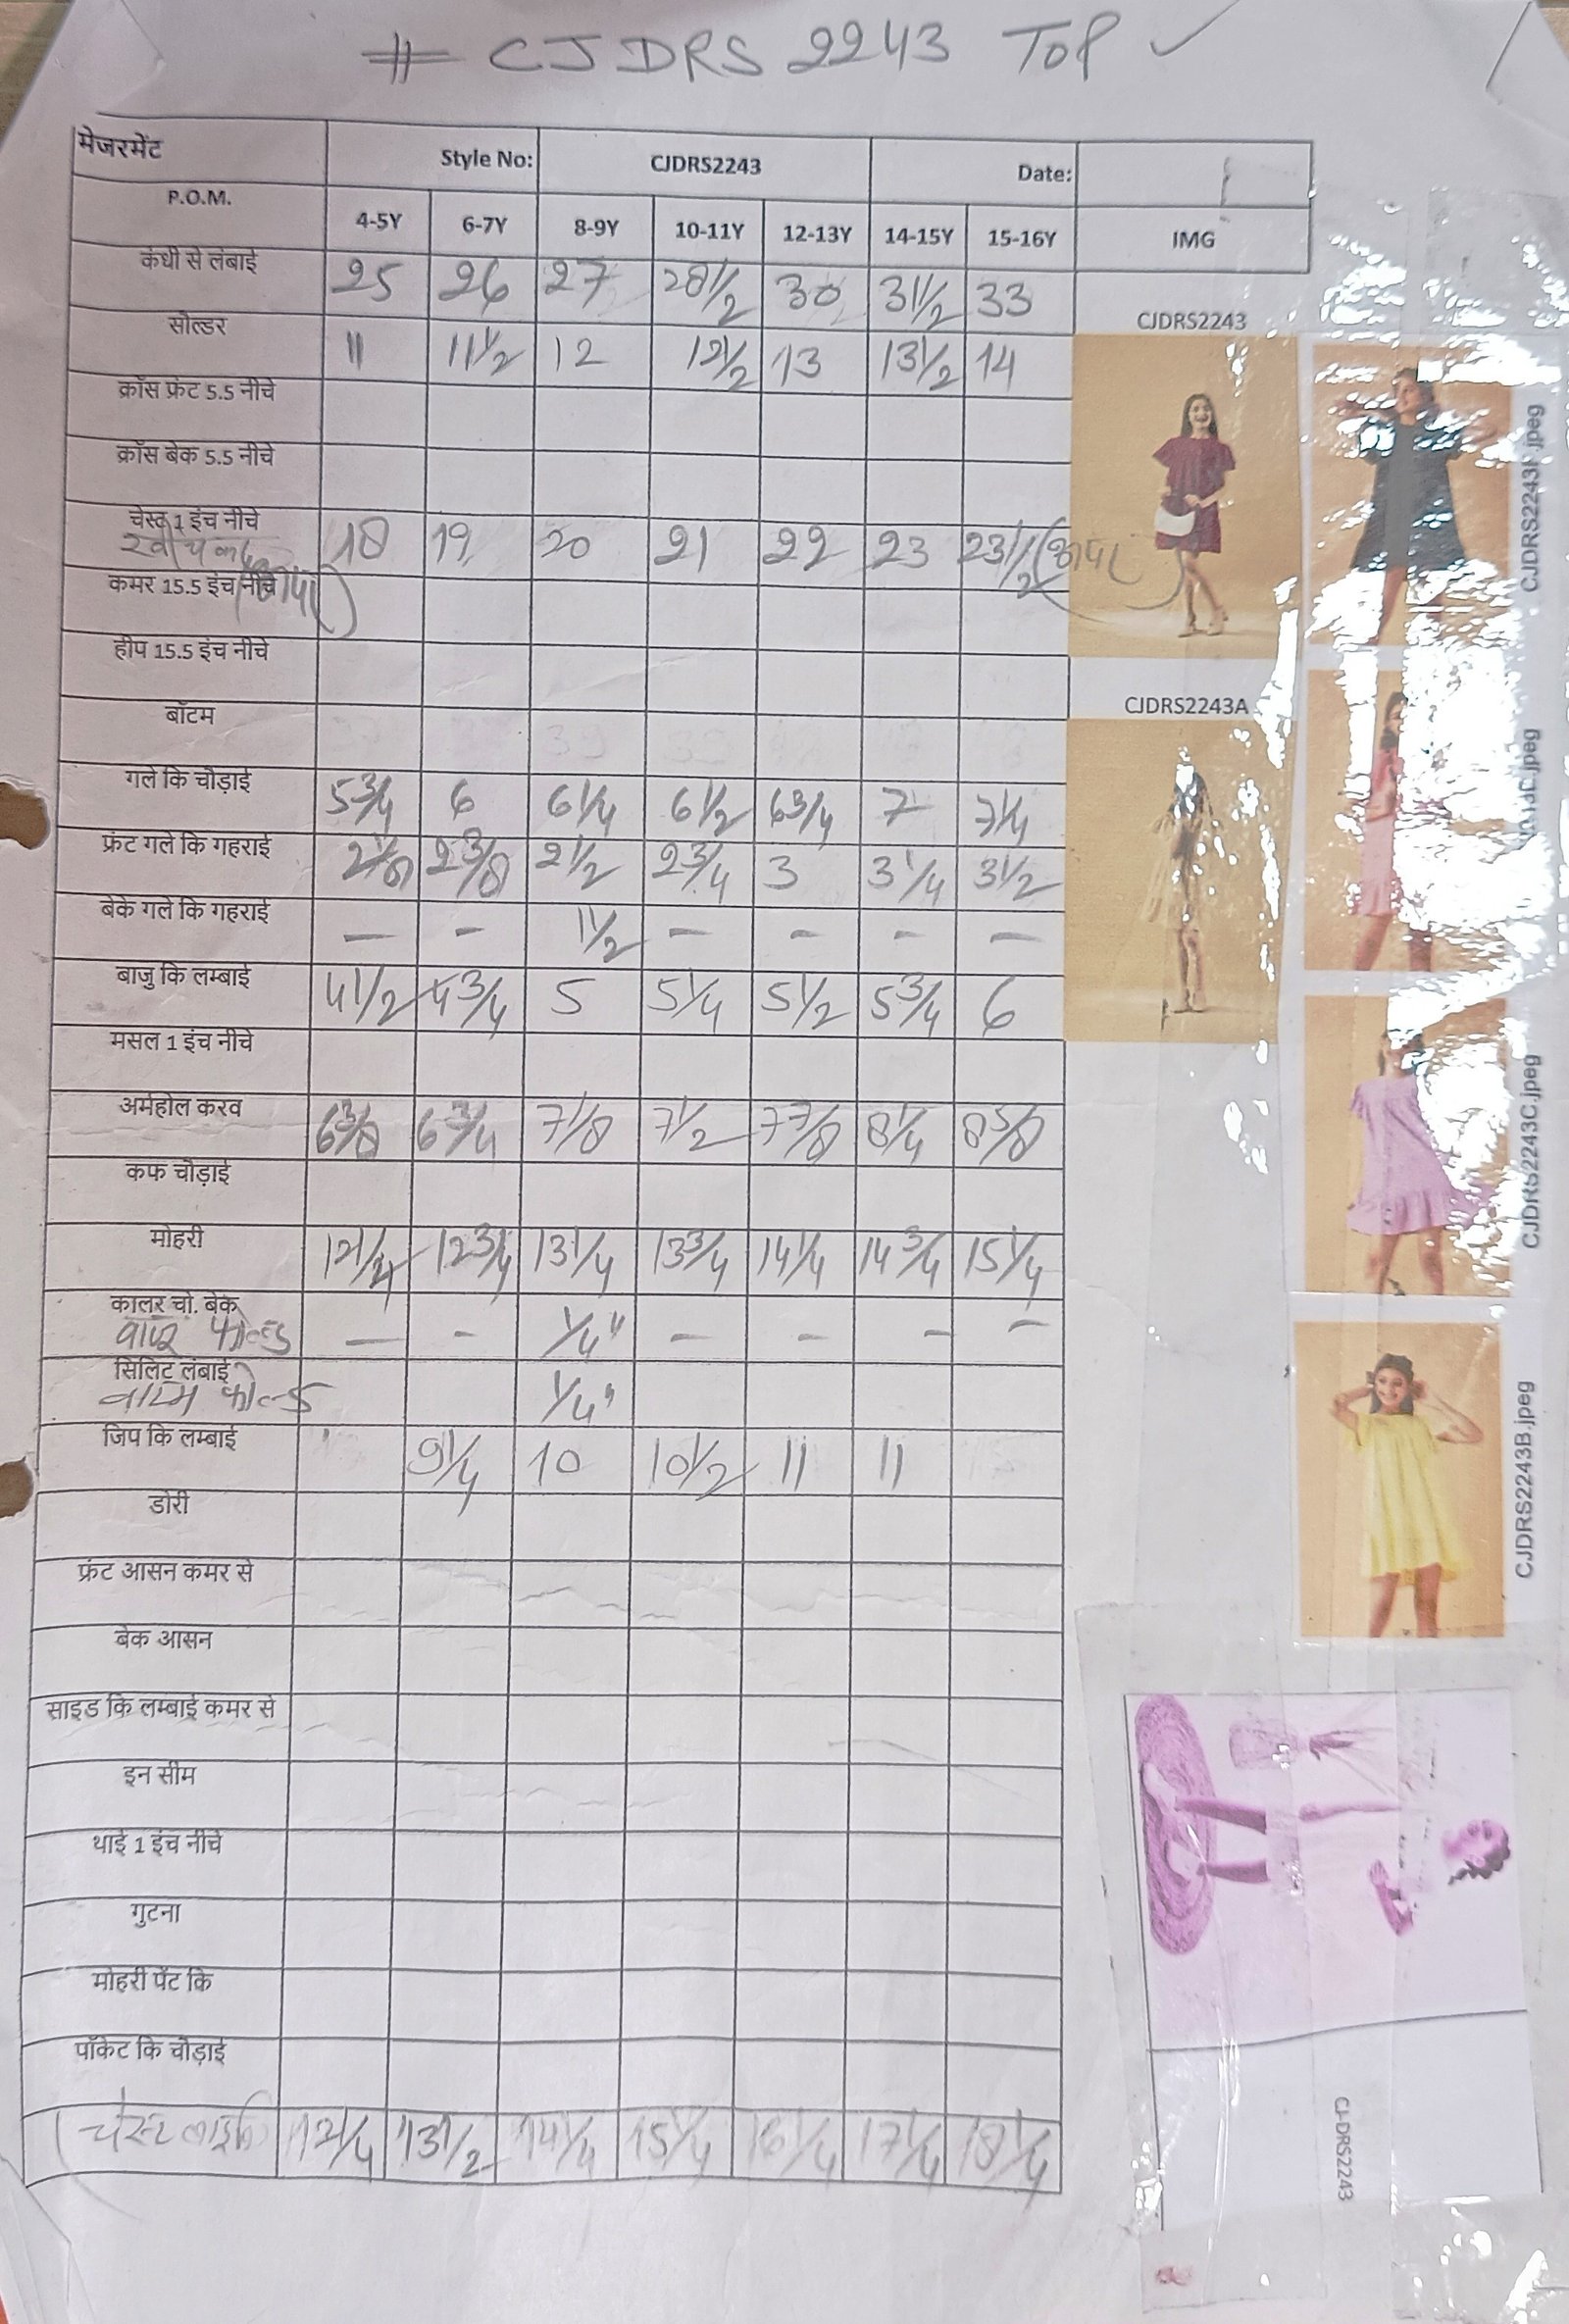 # CJDRS 2243 TOP ✓
मेजरमेंट Style No: CJDRS2243 Date:
P.O.M. 4-5Y 6-7Y 8-9Y 10-11Y 12-13Y 14-15Y 15-16Y IMG
कंधी से लंबाई 25 26 27 28 1/2 30 31 1/2 33
सोल्डर 11 11 1/2 12 12 1/2 13 13 1/2 14
क्रॉस फ्रंट 5.5 नीचे
क्रॉस बेक 5.5 नीचे
चेस्ट 1 इंच नीचे 18 19 20 21 22 23 23 1/2
कमर 15.5 इंच नीचे
हीप 15.5 इंच नीचे
बॉटम
गले कि चौड़ाई 5 3/4 6 6 1/4 6 1/2 6 3/4 7 7 1/4
फ्रंट गले कि गहराई 2 1/8 2 3/8 2 1/2 2 3/4 3 3 1/4 3 1/2
बेके गले कि गहराई — - 1 1/2 - - - —
बाजु कि लम्बाई 4 1/2 4 3/4 5 5 1/4 5 1/2 5 3/4 6
मसल 1 इंच नीचे
अर्महोल करव 6 3/8 6 3/4 7 1/8 7 1/2 7 7/8 8 1/4 8 5/8
कफ चौड़ाई
मोहरी 12 1/4 12 3/4 13 1/4 13 3/4 14 1/4 14 3/4 15 1/4
कालर चो. बेक — - 1/4" - - - -
सिलिट लंबाई 1/4"
जिप कि लम्बाई 9 1/4 10 10 1/2 11 11
डोरी
फ्रंट आसन कमर से
बेक आसन
साइड कि लम्बाई कमर से
इन सीम
थाई 1 इंच नीचे
गुटना
मोहरी पेंट कि
पॉकेट कि चौड़ाई
चेस्ट 12 1/4 13 1/2 14 1/4 15 1/4 16 1/4 17 1/4 18 1/4
CJDRS2243
CJDRS2243A
CJDRS2243C.jpeg
CJDRS2243B.jpeg
CJ-DRS2243